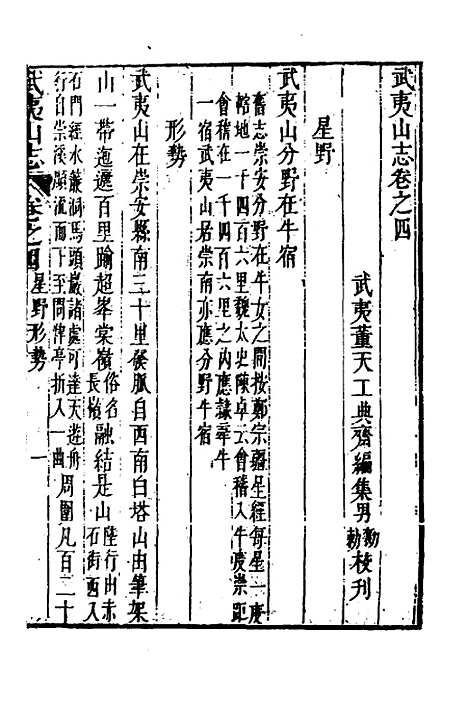 武夷山志卷之四
武夷董天工典齋編集男勷勑校刊
星野
武夷山分野在牛宿
舊志崇安分野在牛女之間按鄭宗彊星經每星一度
輅地一千四百六里魏太史陳卓云會稽入牛度崇距
會稽在一千四百六里之內應隸牽牛
一宿武夷山居崇南亦應分野牛宿
形勢
武夷山在崇安縣南三十里發脈自西南白塔山由筆架
山一帶迤邐百里踰超峯棠嶺俗名長嶺融結是山陸行由赤石街西入
石門經水簾洞馬頭巖諸處可達天遊舟
行自崇溪順流而下至問津亭折入一曲周圍凡百二十
武夷山志 卷之四 星野 形勢 一